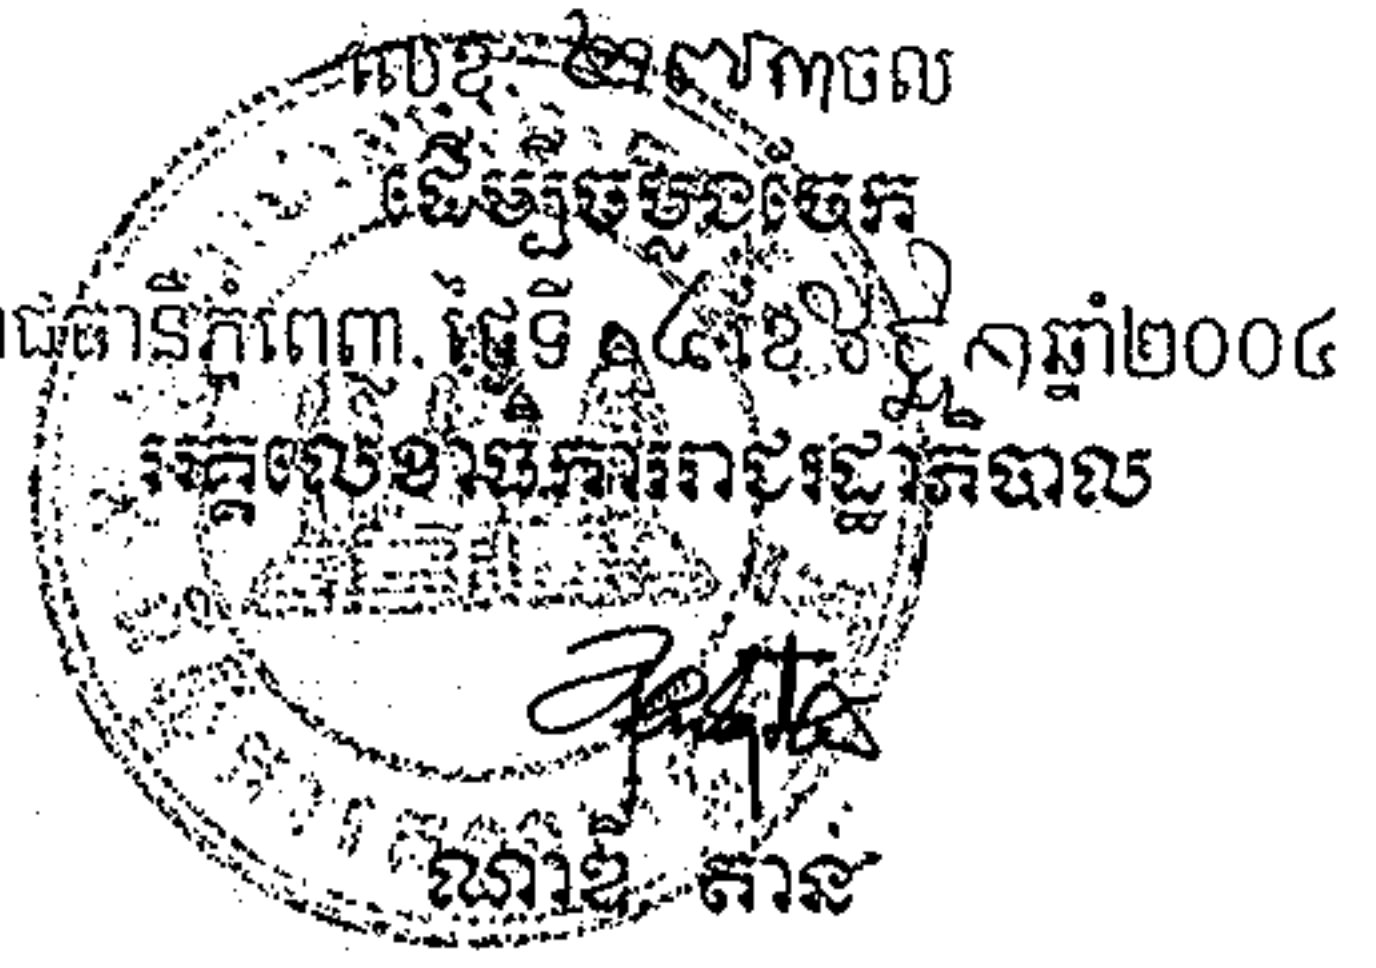 លេខ. ២៧៣ចល
ដើម្បីចម្លងចែក
ជធានីភ្នំពេញ, ថ្ងៃទី ១៤ខែ ឆ្នាំ២០០៤
អគ្គលេខាធិការរាជរដ្ឋាភិបាល
ណាឌី តាន់